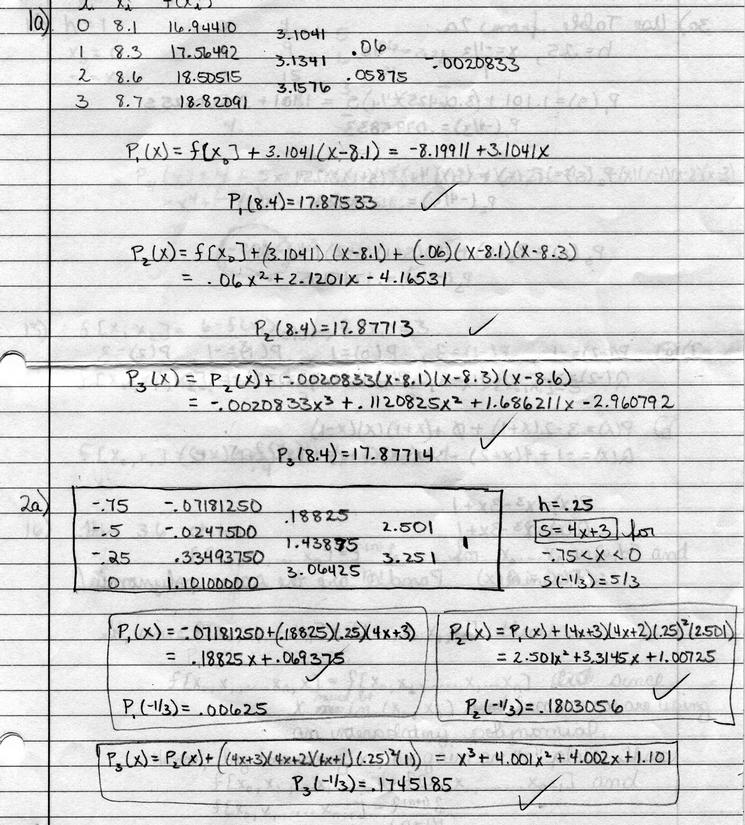 i xi f(xi)
1a) 0 8.1 16.94410
3.1041
1 8.3 17.56492 .06
3.1341 -.0020833
2 8.6 18.50515 .05875
3.1576
3 8.7 18.82091
P₁(x) = f[x₀] + 3.1041(x-8.1) = -8.19911 + 3.1041x
P₁(8.4) = 17.87533 ✓
P₂(x) = f[x₀] + (3.1041)(x-8.1) + (.06)(x-8.1)(x-8.3)
= .06x² + 2.1201x - 4.16531
P₂(8.4) = 17.87713 ✓
P₃(x) = P₂(x) + -.0020833(x-8.1)(x-8.3)(x-8.6)
= -.0020833x³ + .1120825x² + 1.686211x - 2.960792
P₃(8.4) = 17.87714 ✓
2a) -.75 -.07181250
.18825
-.5 -.0247500 2.501
1.43875 1
-.25 .33493750 3.251
3.06425
0 1.10100000
h = .25
S = 4x+3 for
-.75 < x < 0
s(-1/3) = 5/3
P₁(x) = -.07181250 + (.18825)(.25)(4x+3)
= .18825x + .069375
P₁(-1/3) = .00625 ✓
P₂(x) = P₁(x) + (4x+3)(4x+2)(.25)²(2.501)
= 2.501x² + 3.3145x + 1.00725
P₂(-1/3) = .1803056 ✓
P₃(x) = P₂(x) + ((4x+3)(4x+2)(4x+1)(.25)³(1)) = x³ + 4.001x² + 4.002x + 1.101
P₃(-1/3) = .1745185 ✓